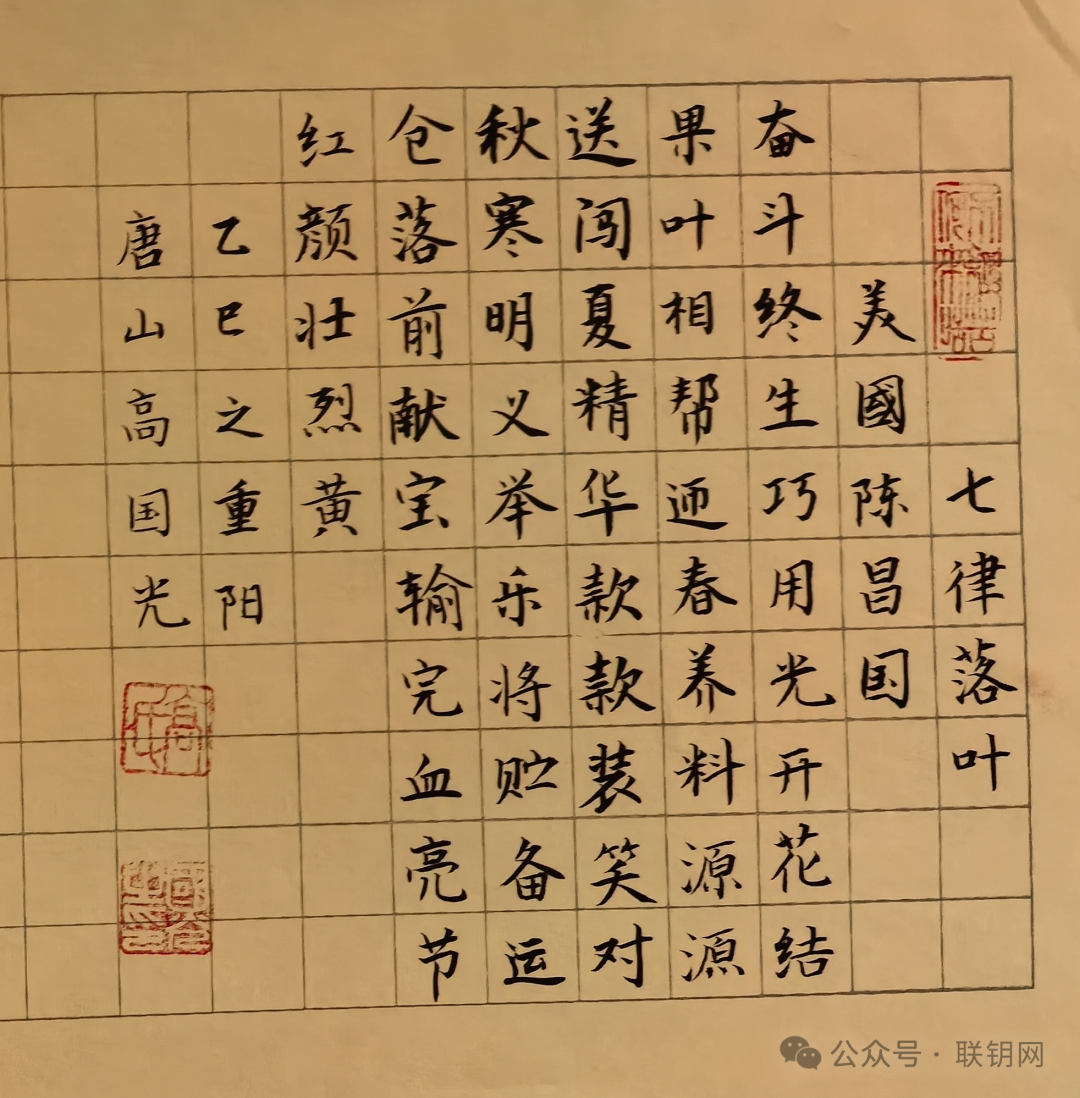 七律落叶
美國陈昌国
奋斗终生巧用光开花结
果叶相帮迊春养料源源
送闯夏精华款款装笑对
秋寒明义举乐将贮备运
仓落前献宝输完血亮节
红颜壮烈黄
乙巳之重阳
唐山高国光
高氏
國光之印
公众号·联钥网